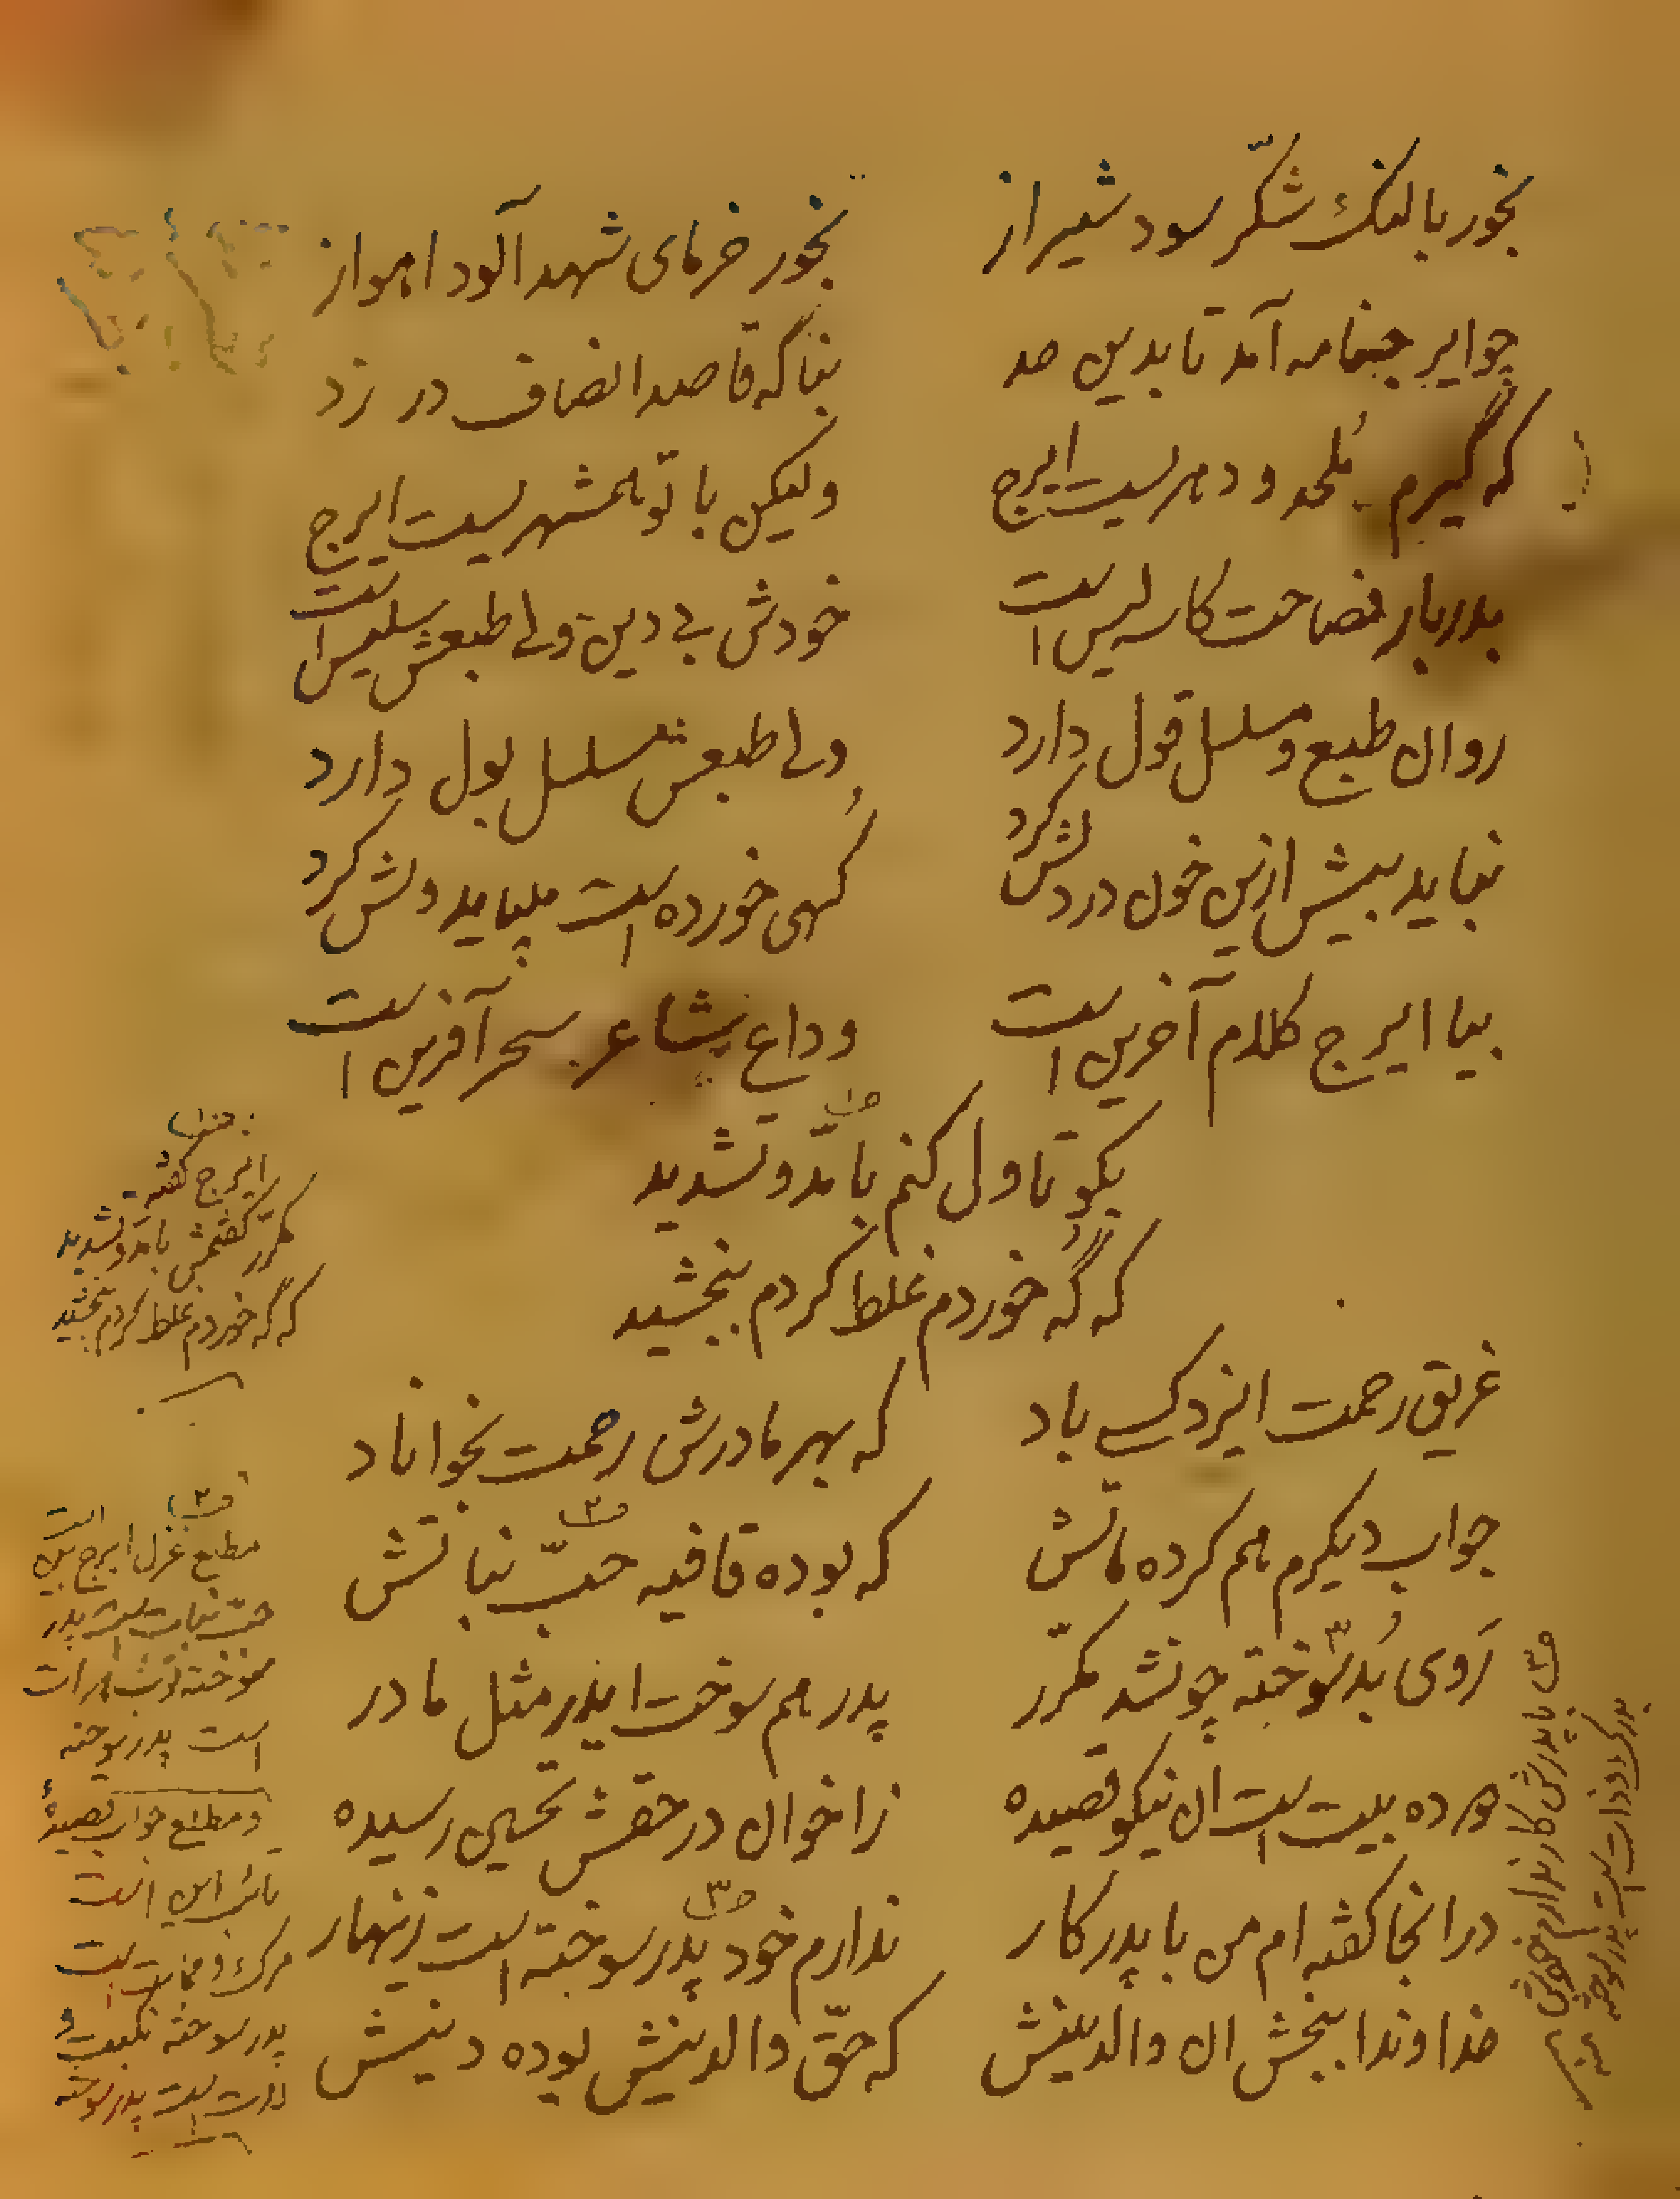 بخور بالنگ شکّر سود شیراز
بخور خرمای شهد آلود اهواز
چو ایرجنامه آمد تا بدین حد
بناگه قاصد انصاف در زد
که گیرم ملحد و دهریست ایرج
ولیکن با تو همشهریست ایرج
بدربار فصاحت کاسه لیس است
خودش بی دین ولی طبعش سلیس است
روان طبع و مسلسل قول دارد
ولی طبعش سلسل بول دارد
نباید بیش ازین خون در دلش کرد
گهی خورده است میباید ولش کرد
بیا ایرج کلام آخرین است
وداع شاعر سحر آفرین است
بگو تا ول کنم با مدّ و تشدید
که گه خوردم غلط کردم ببخشید
غریق رحمت ایزد کسی باد
که بهر مادرش رحمت بخواناد
جواب دیگرم هم کرده ماتش
که بوده قافیه حبّ نباتش
رَوی بُد سوخته چو نشد مکرّر
پدر هم سوخت اینیدر مثل مادر
ده بیت است ان نیکو قصیده
ز اخوان در حقش تحسین رسیده
در انجا گفته ام من با پدر کار
ندارم خود پدر سوخته است زنهار
خداوندا ببخش ان والدینش
که حقّ والدینش بوده دینش
ایرج گفته
مکرر گفتمش با مدّ و تشدید
که گه خوردم غلط کردم ببخشید
مطلع غزل ایرج این است
حبّ نبات است پدر
سوخته
است پدر سوخته
و مطلع جواب قصیدهٔ
این است
مرگ و ممات است
پدر سوخته
است پدر سوخته
با پدرش کار ندارم خودش
پدر سوخته